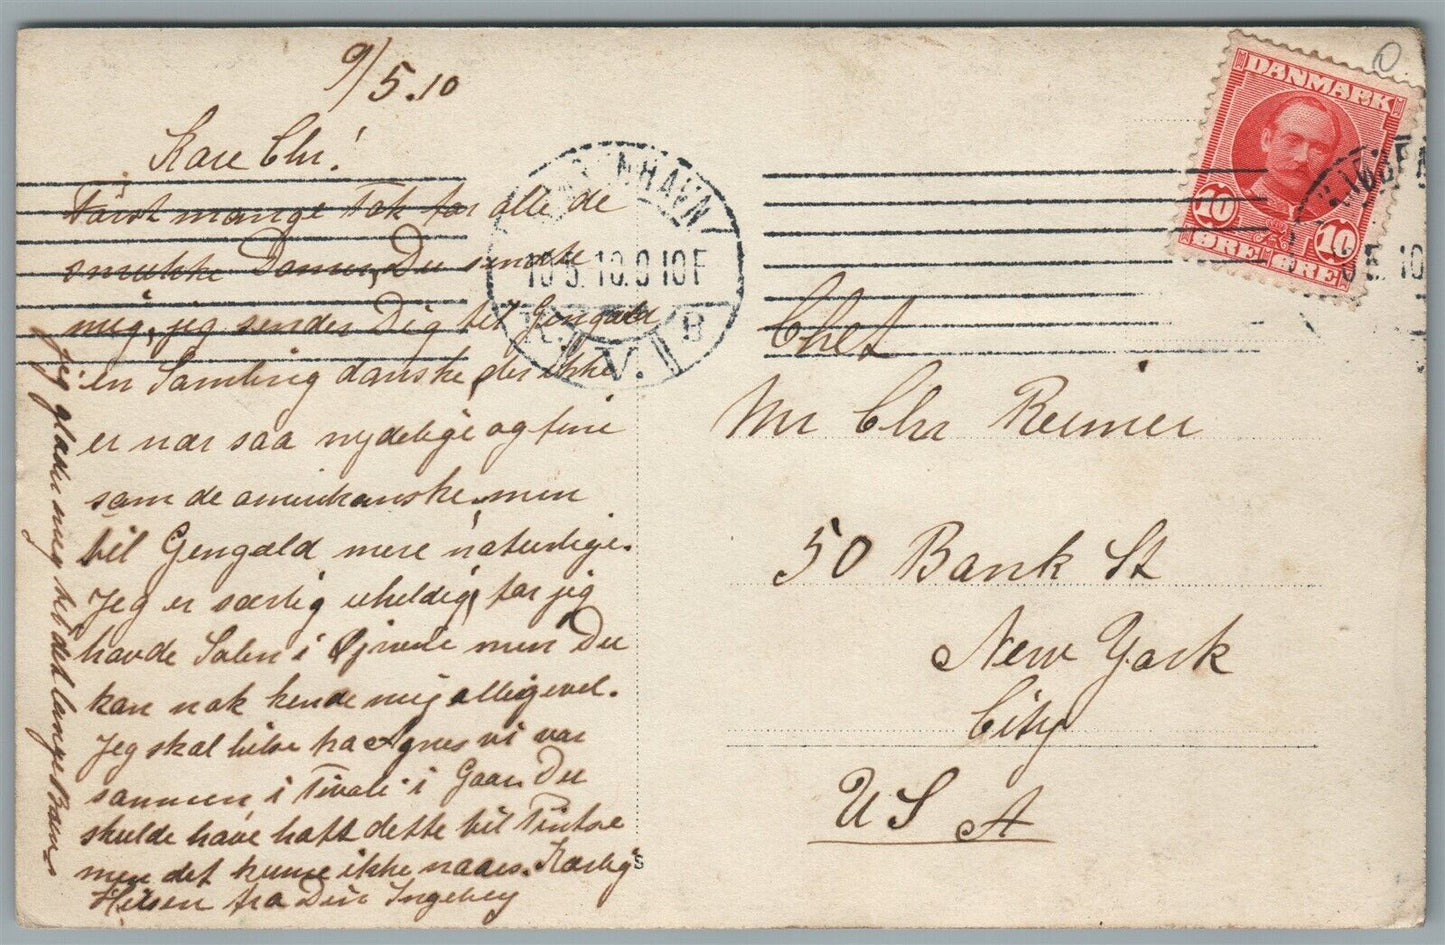 9/5.10
Kære Chr!
Først mange Tak for alle de
smukke Damer, Du sendte
mig, jeg sender Dig til Gengæld
en Samling danske, der ikke
er nær saa nydelige og fine
som de amerikanske, men
til Gengæld mere naturlige.
Jeg er særlig uheldig, for jeg
havde Solen i Øjnene men Du
kan nok kende mig alligevel.
Jeg skal hilse fra Agnes vi var
sammen i Tivoli i Gaar. Du
skulde have haft dette til Pintse
men det kunne ikke naaes. Kærlig
Hilsen fra Din Ingeborg
Jeg glæder mig til det lange Brev
KJØBENHAVN
10.5.10.9-10F
K. V. B
DANMARK
10 10
ØRE ØRE
Chef
Mr Chr Reimer
50 Bank St
New York
City
U S A